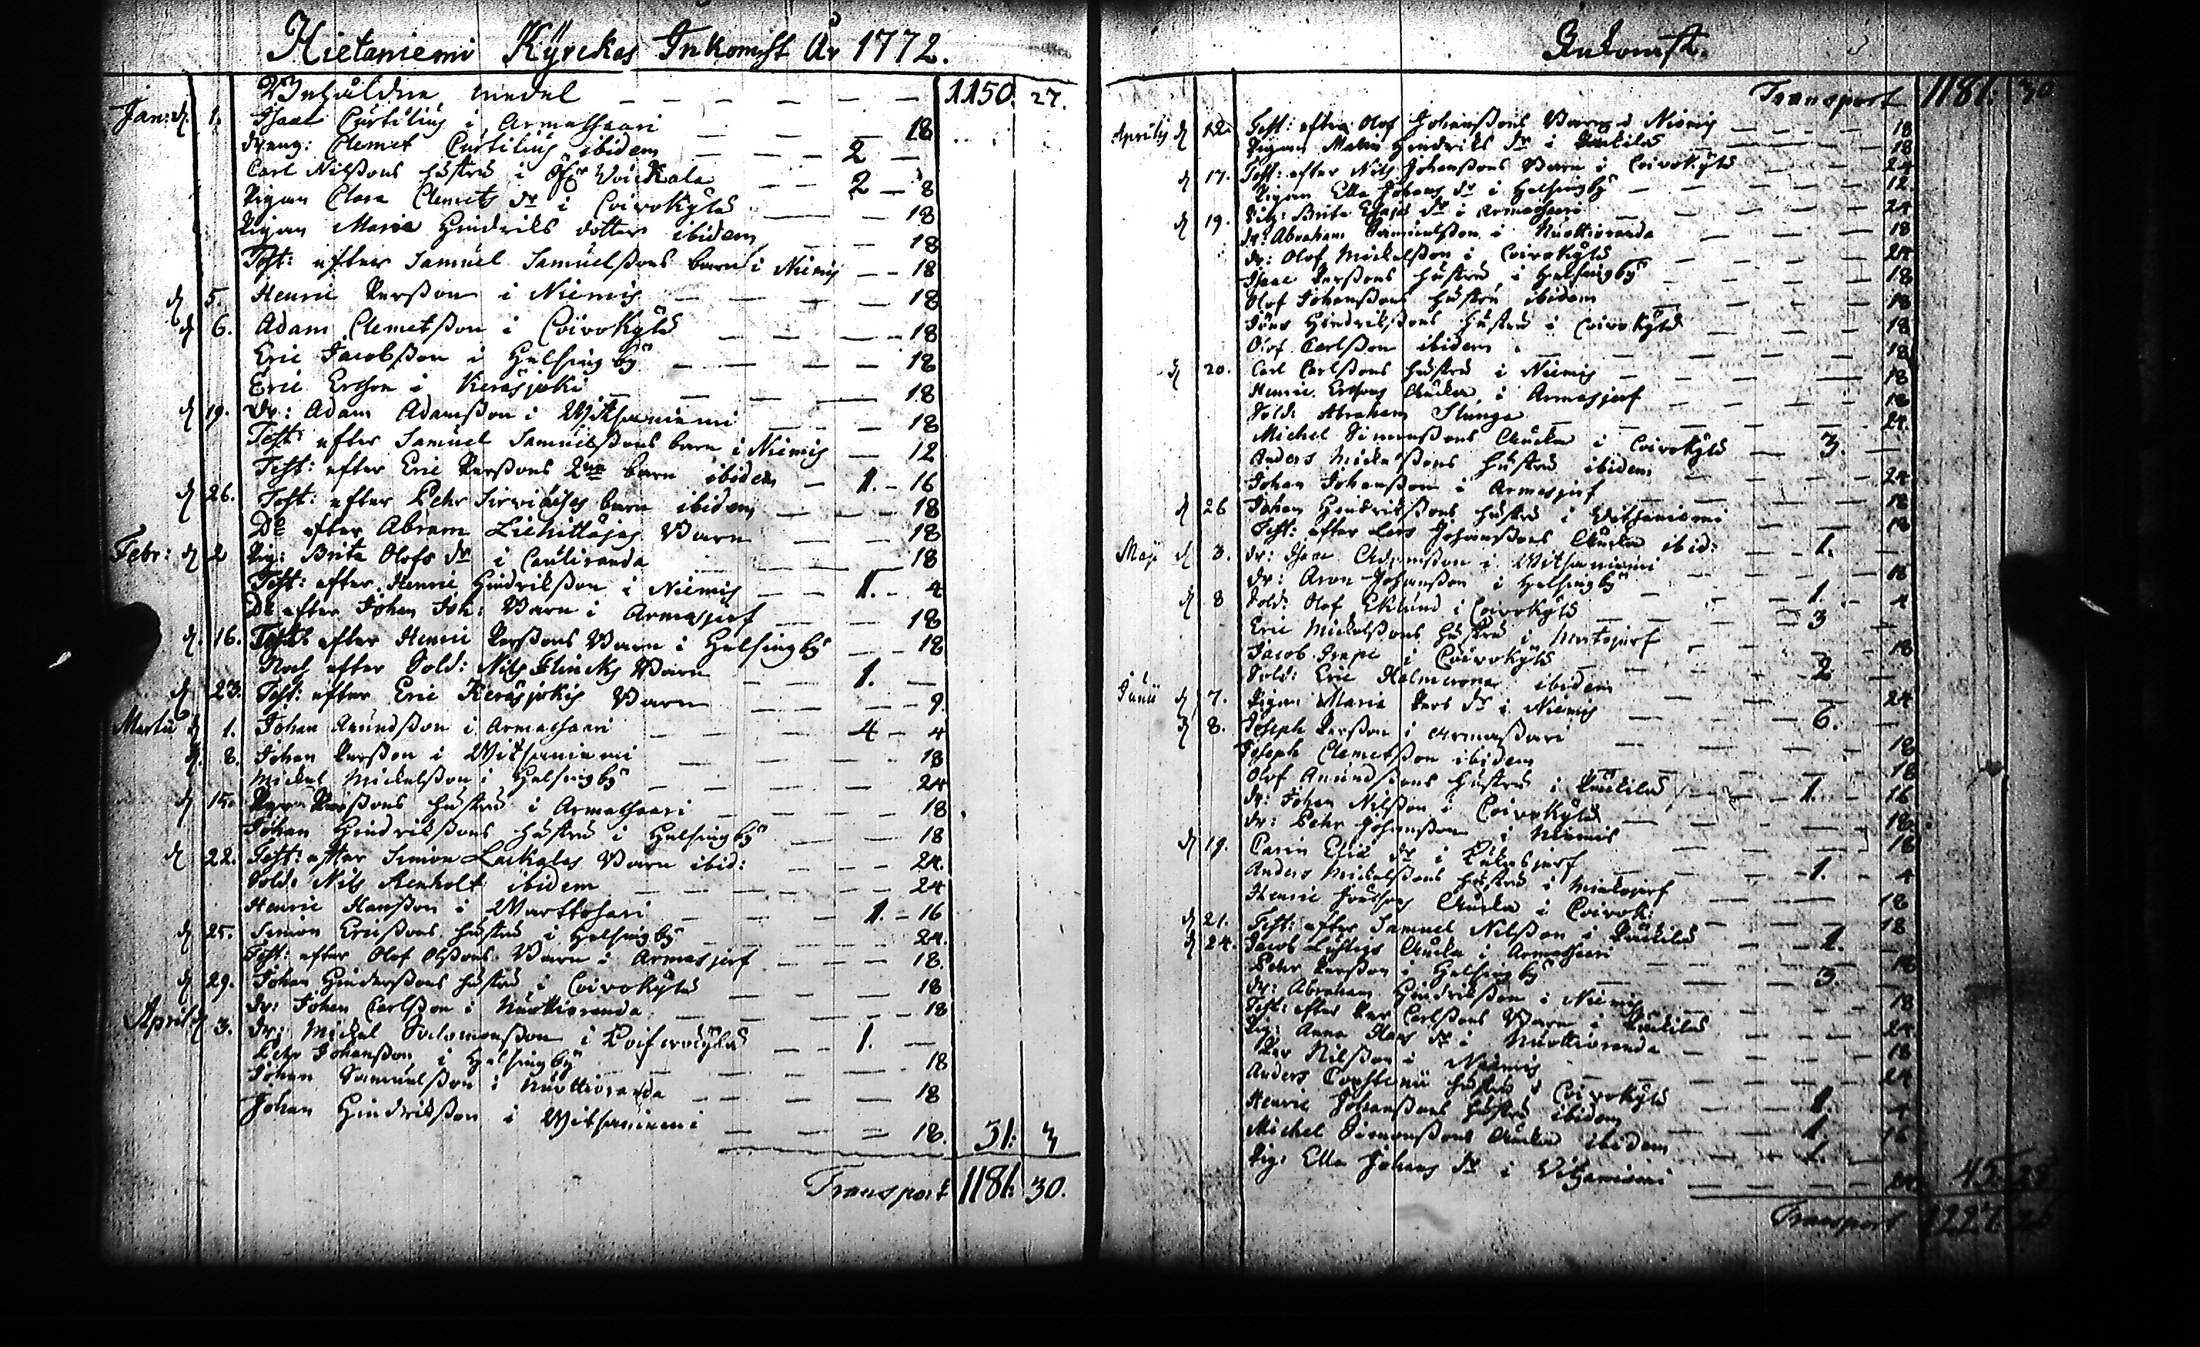 Hietaniemi Kyrckas Inkomst År 1772.
Behåldne medel — 1150. 27.
Jan: d. 1. Isaac Curtilius i Armassaari — 18
Dräng: Clemet Curtilius ibidem — 2 —
Carl Nilssons hustru i Öfr Woickala — 2 — 8
Pigan Clara Clemets dr i Coivokylä — 18
Pigan Maria Hindriks dotter ibidem — 18
Test: efter Samuel Samuelssons barn i Niemis — 18
d 5. Henric Persson i Niemis — 18
d 6. Adam Clemetsson i Coivokylä — 18
Eric Jacobsson i Helsingby — 18
Eric Ersson i Kieräsjoki — 18
d 19. Dr: Adam Adamsson i Witsaniemi — 18
Test: efter Samuel Samuelssons barn i Niemis — 12
Test: efter Eric Perssons 2ne barn ibidem — 1. — 16
d 26. Test: efter Pehr barn ibidem — 18
Do efter Abram Barn — 18
Febr: d 2 Pig: Brita Olofs dr i Cauliranda — 18
Test: efter Henric Hindriksson i Niemis — 1. — 4
Do efter Johan Joh: Barn i Armasjerf — 18
d. 16. Test: efter Henric Perssons Barn i Helsingby — 18
efter Sold: Nils Flincks Barn — 1. —
d 23. Test: efter Eric Kieräsjokis Barn — 9.
Martii d 1. Johan Amundsson i Armassaari — 4 — 4
d. 8. Johan Persson i Witsaniemi — 18
Mickel Mickelsson i Helsingby — 24
d 15. Per Perssons hustru i Armassaari — 18
Johan Hindrikssons hustru i Helsingby — 18
d 22. Test: efter Simon Laikalas Barn ibid: — 24.
Sold: Nils Stenholt ibidem — 24
Henric Hansson i — 1. — 16
d 25. Simon Ericssons hustru i Helsingby — 24.
Test: efter Olof Olssons Barn i Armasjerf — 18.
d 29. Johan Hinderssons hustru i Coivokylä — 18
Dr: Johan Carlsson i Nuottioranda — 18
April d 3. Dr: Mickel Salomonsson i — 1. —
Pehr Johansson i Helsingby — 18
Johan Samuelsson i Nuottioranda — 18
Johan Hindriksson i Witsaniemi — 18. 31: 3
Transport 1181. 30.
Inkomst.
Transport 1181. 30
Aprilis d 12. Test: efter Olof Johanssons Barn i Niemis — 18
Pigan Maria Hindriks dr i Päckilä — 18
d 17. Test: efter Nils Johanssons Barn i Coivokylä — 24
Pigan Ella Johans dr i Helsingby — 12.
d 19. Pig: Brita dr i Armassaari — 24
Dr: Abraham Samuelsson i Nuottioranda — 18
Dr: Olof Mickelsson i Coivokylä — 24
Isaac Perssons hustru i Helsingby — 18
Olof Johanssons hustru ibidem — 18
Jöns Hindrikssons hustru i Coivokylä — 18
Olof Carlsson ibidem — 18
d 20. Carl Carlssons hustru i Niemis — 18
Henric Erssons Äncka i Armasjerf — 18
Sold: Abraham Stunga — 24
Michel Simonssons Äncka i Coivokylä — 3. —
Anders Mickelssons hustru ibidem — 24
Johan Johansson i Armasjerf — 18
d 26 Johan Hindrikssons hustru i Witsaniemi — 18
Test: efter Lars Johanssons Äncka ibid: — 1. —
Maji d 3. Dr: Isaac Adamsson i Witsaniemi — 18
Dr: Aron Johansson i Helsingby — 1. — 4
d 8 Sold: Olof Eklund i Coivokylä — 3
Eric Mickelssons hustru i — 18
Jacob i Coivokylä — 2
Sold: Eric ibidem — 24
Junii d 7. Pigan Maria Pers dr i Niemis — 6. —
d 8. Joseph Persson i Armassari — 18
Joseph Clemetsson ibidem — 18
Olof Amundssons hustru i Päckilä — 1. — 16
Dr: Johan Nilsson i Coivokylä — 18
Dr: Pehr Johansson i Niemis — 18
d 19. Carin Erics dr i — 1. — 4
Anders Mickelssons hustru i — 18
Henric Äncka i Coivok: — 18
d 21. Test: efter Samuel Nilsson i Päckilä — 1. —
d 24. Jacob Äncka i Armassaari — 18
Pehr Persson i Helsingby — 3. —
Dr: Abraham Hindriksson i Niemis — 18
Test: efter Per Carlssons Barn i Päckilä — 24
Pig: Anna dr i Nuottioranda — 18
Per Nilsson i Niemis — 24
Anders hustru i Coivokylä — 1. — 4
Henric Johanssons hustru ibidem — 1. — 16
Michel Simonssons Äncka ibidem — 1. —
Pig: Ella Johans dr i — 24. 45. 28
Transport 1227. 26